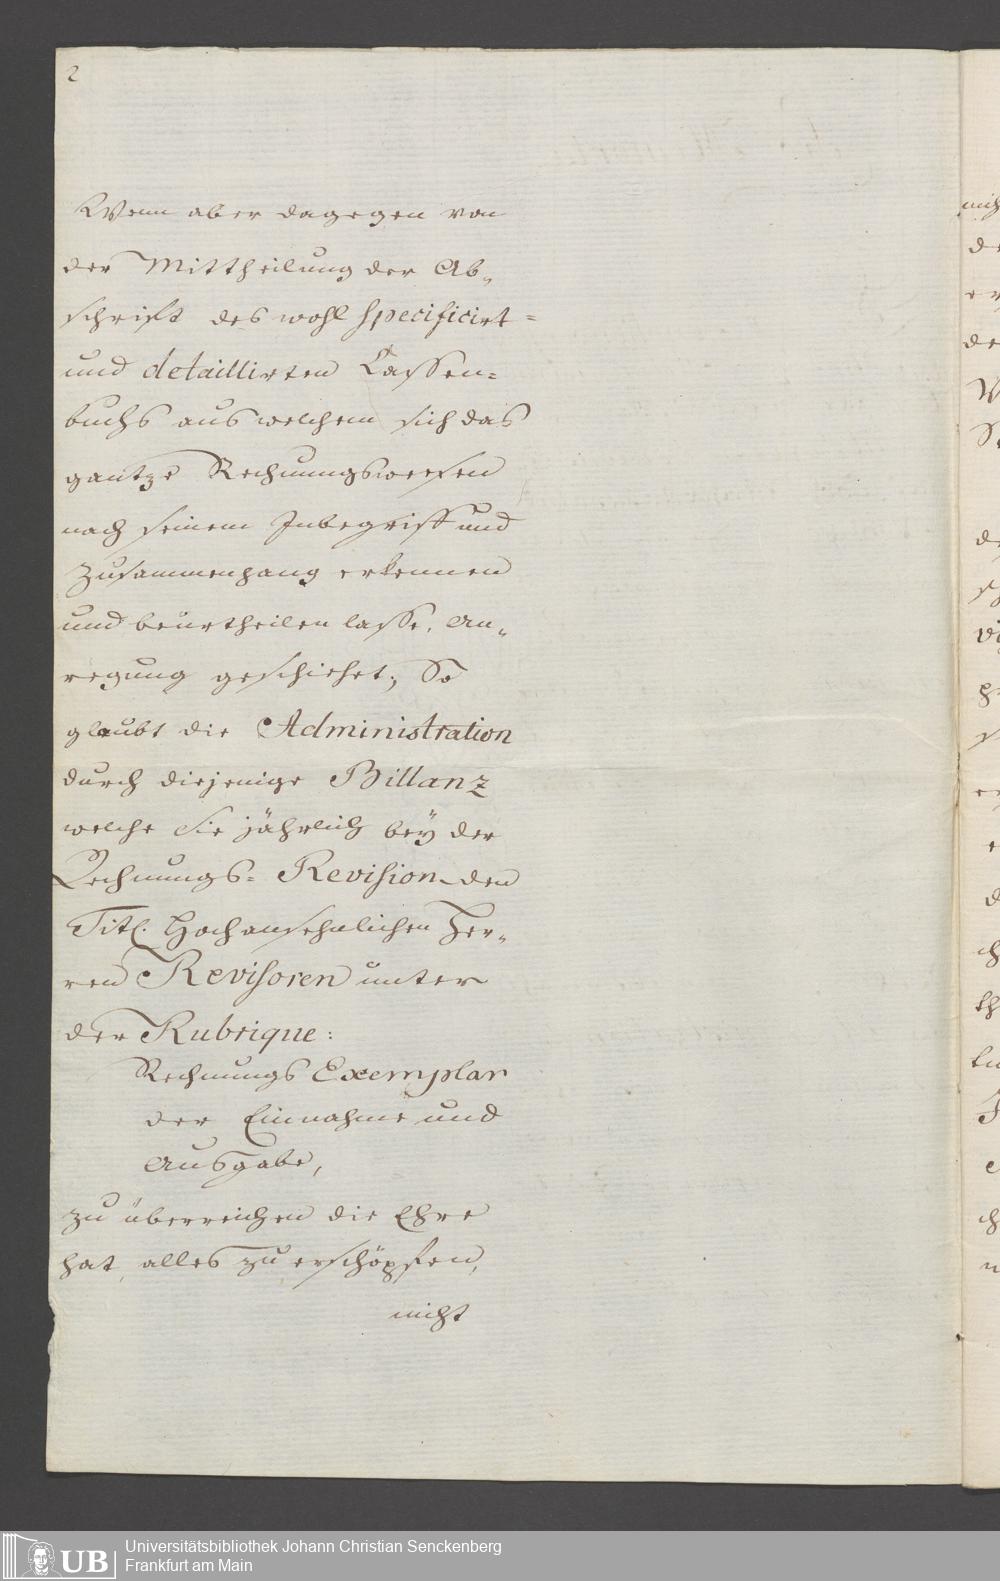 2
Wenn aber dagegen von
der Mittheilung der Ab„
schrift des wohl specificirt=
und detaillirten Cassen=
buchs aus welchem sich das
gantze Rechnungswesen
nach seinem Inbegriff und
Zusammenhang erkennen
und beurtheilen lasse, An„
regung geschiehet; So
glaubt die Administration
durch diejenige Billanz
welche Sie jährlich beÿ der
Rechnungs= Revision den
Titl. Hochansehnlichen Her„
ren Revisoren unter
der Rubrique:
Rechnungs Exemplar
der Einnahme und
Ausgabe,
zu überreichen die Ehre
hat, alles zu erschöpfen,
nicht
UB
Universitätsbibliothek Johann Christian Senckenberg
Frankfurt am Main